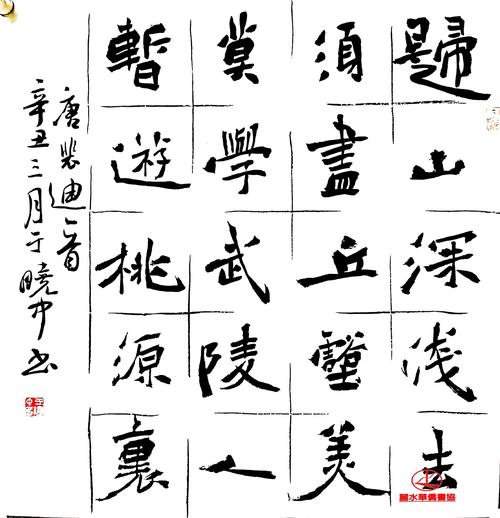 歸山深淺去
須盡丘壑美
莫學武陵人
暫遊桃源裏
唐裴迪一首
辛丑三月于曉中书
麗水華僑書協